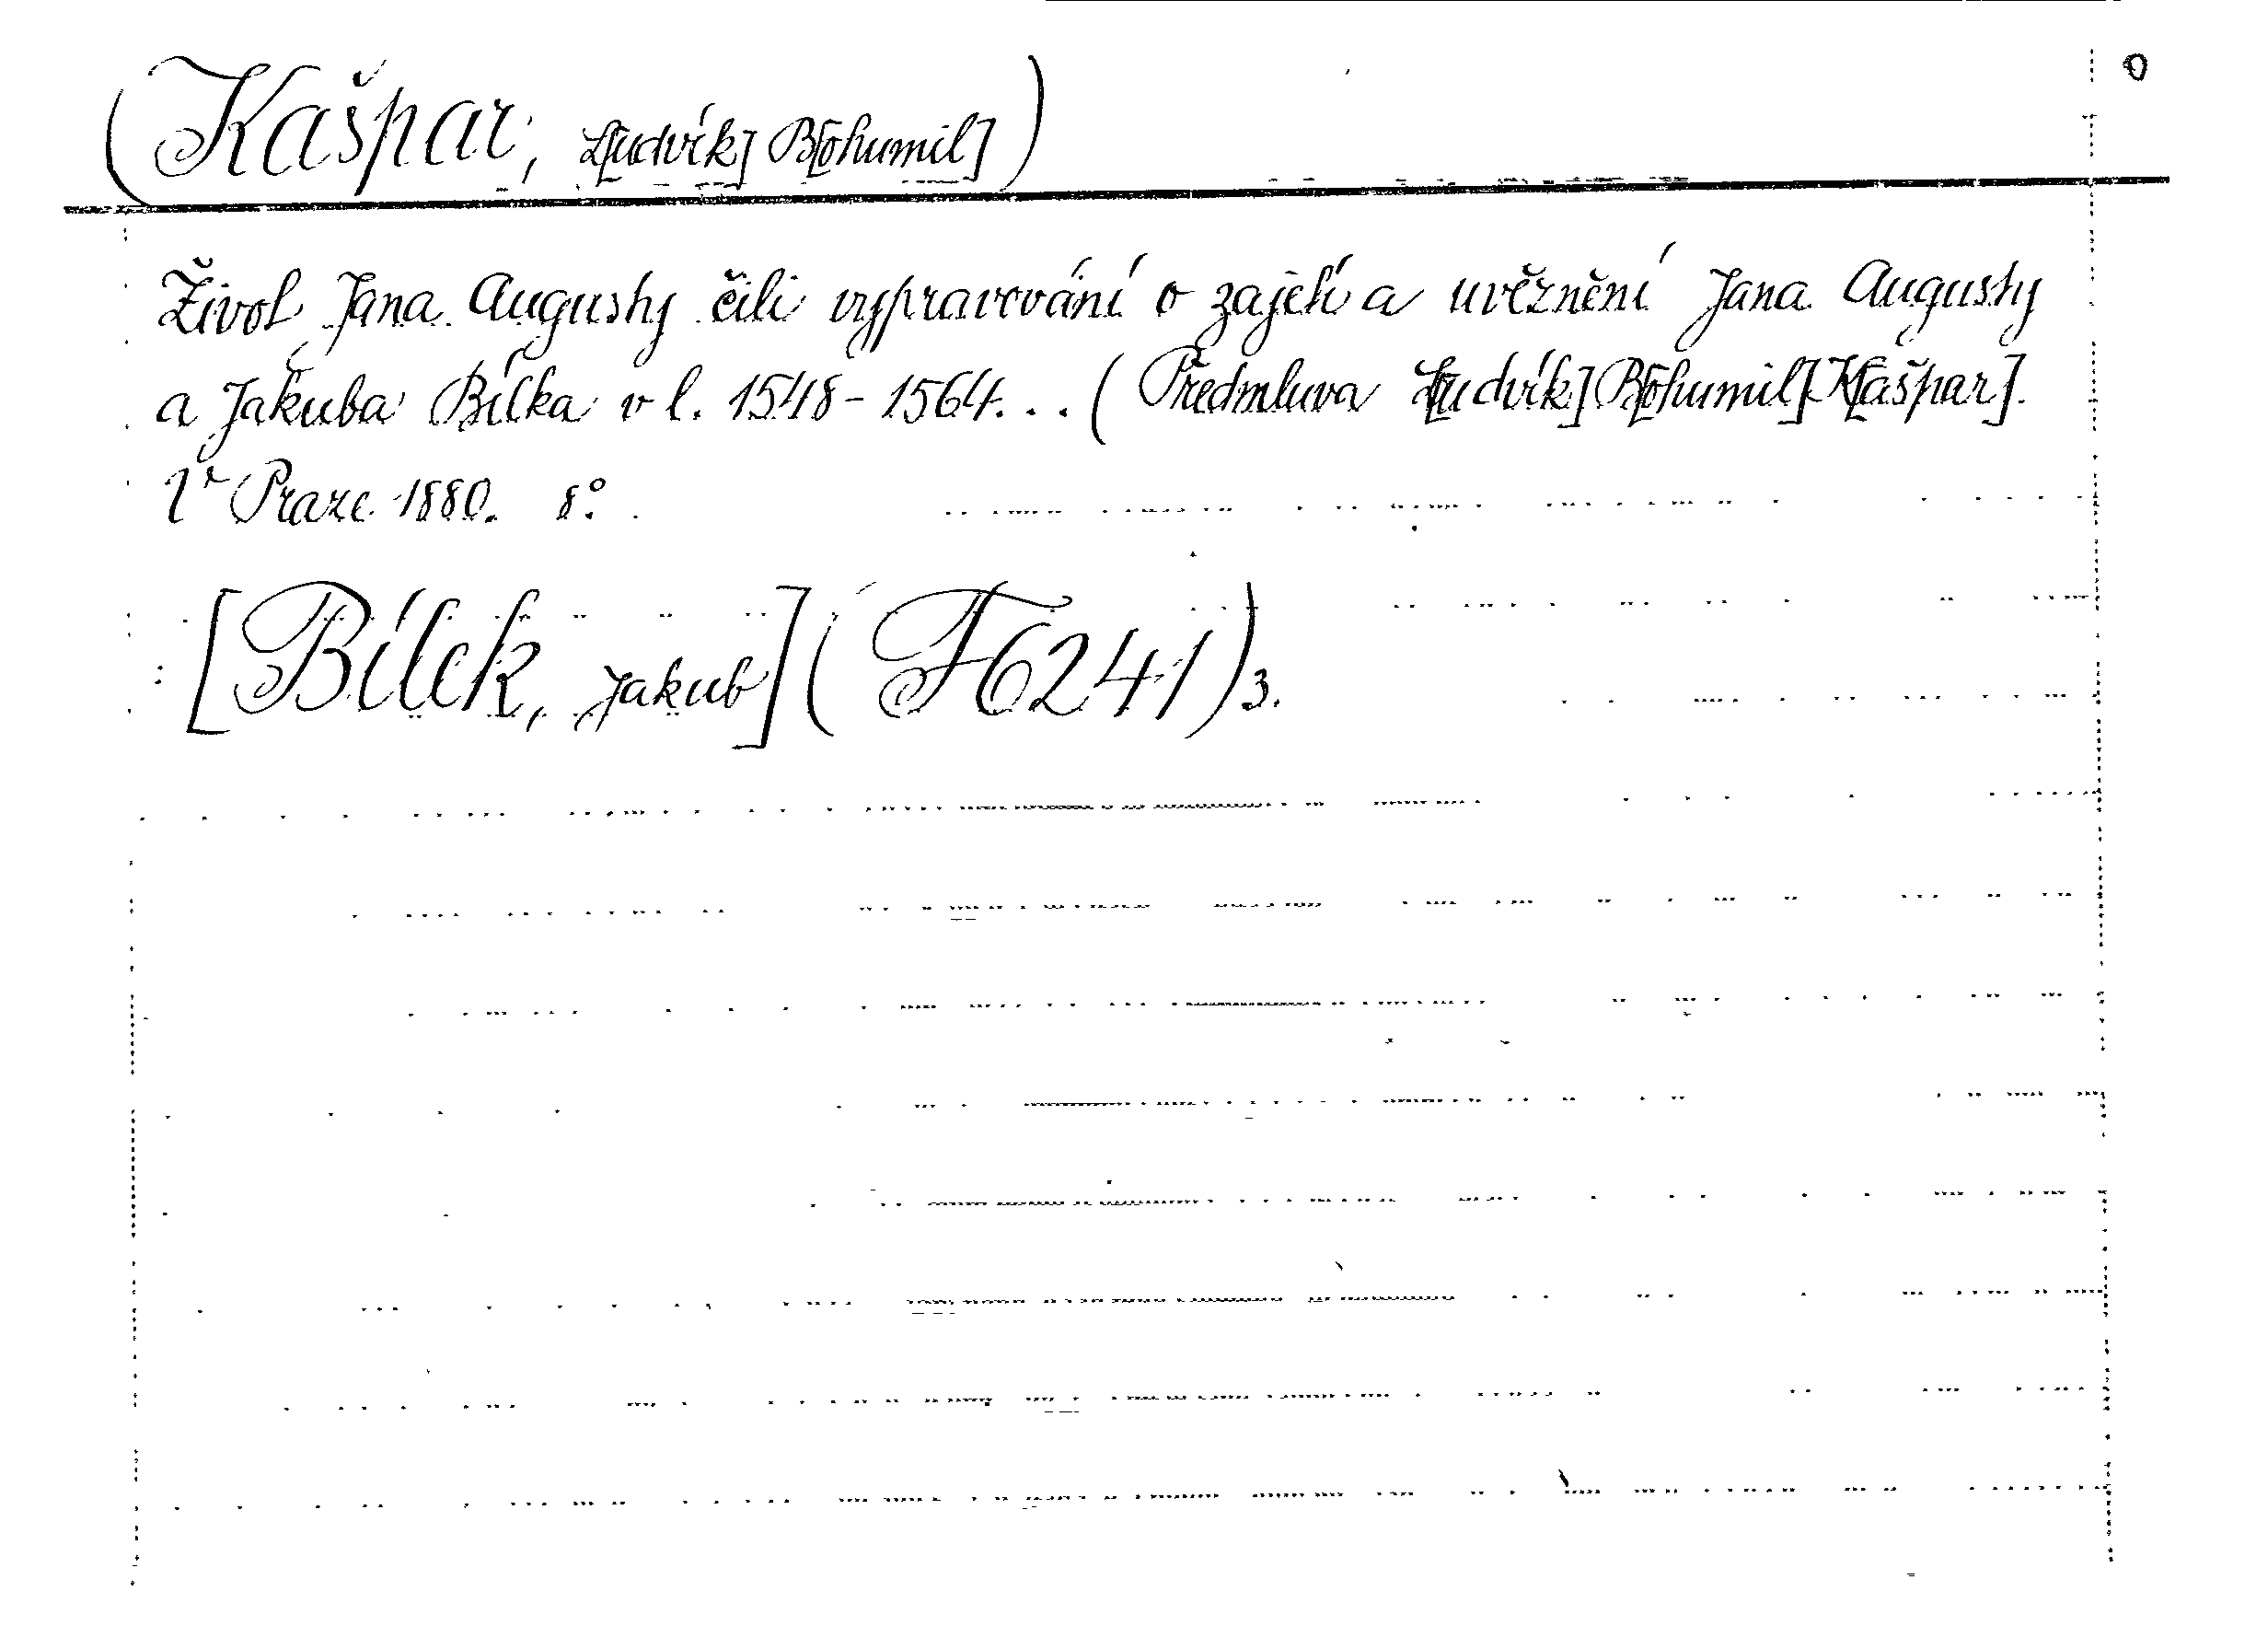 (Kašpar, L[udvík] B[ohumil])
Život Jana Augusty čili vypravování o zajetí a uvěznění Jana Augusty
a Jakuba Bílka v l. 1548-1564... (Předmluva L[udvík] B[ohumil] K[ašpar].
V Praze 1880. 8°.
[Bílek, Jakub] (F6241)3.